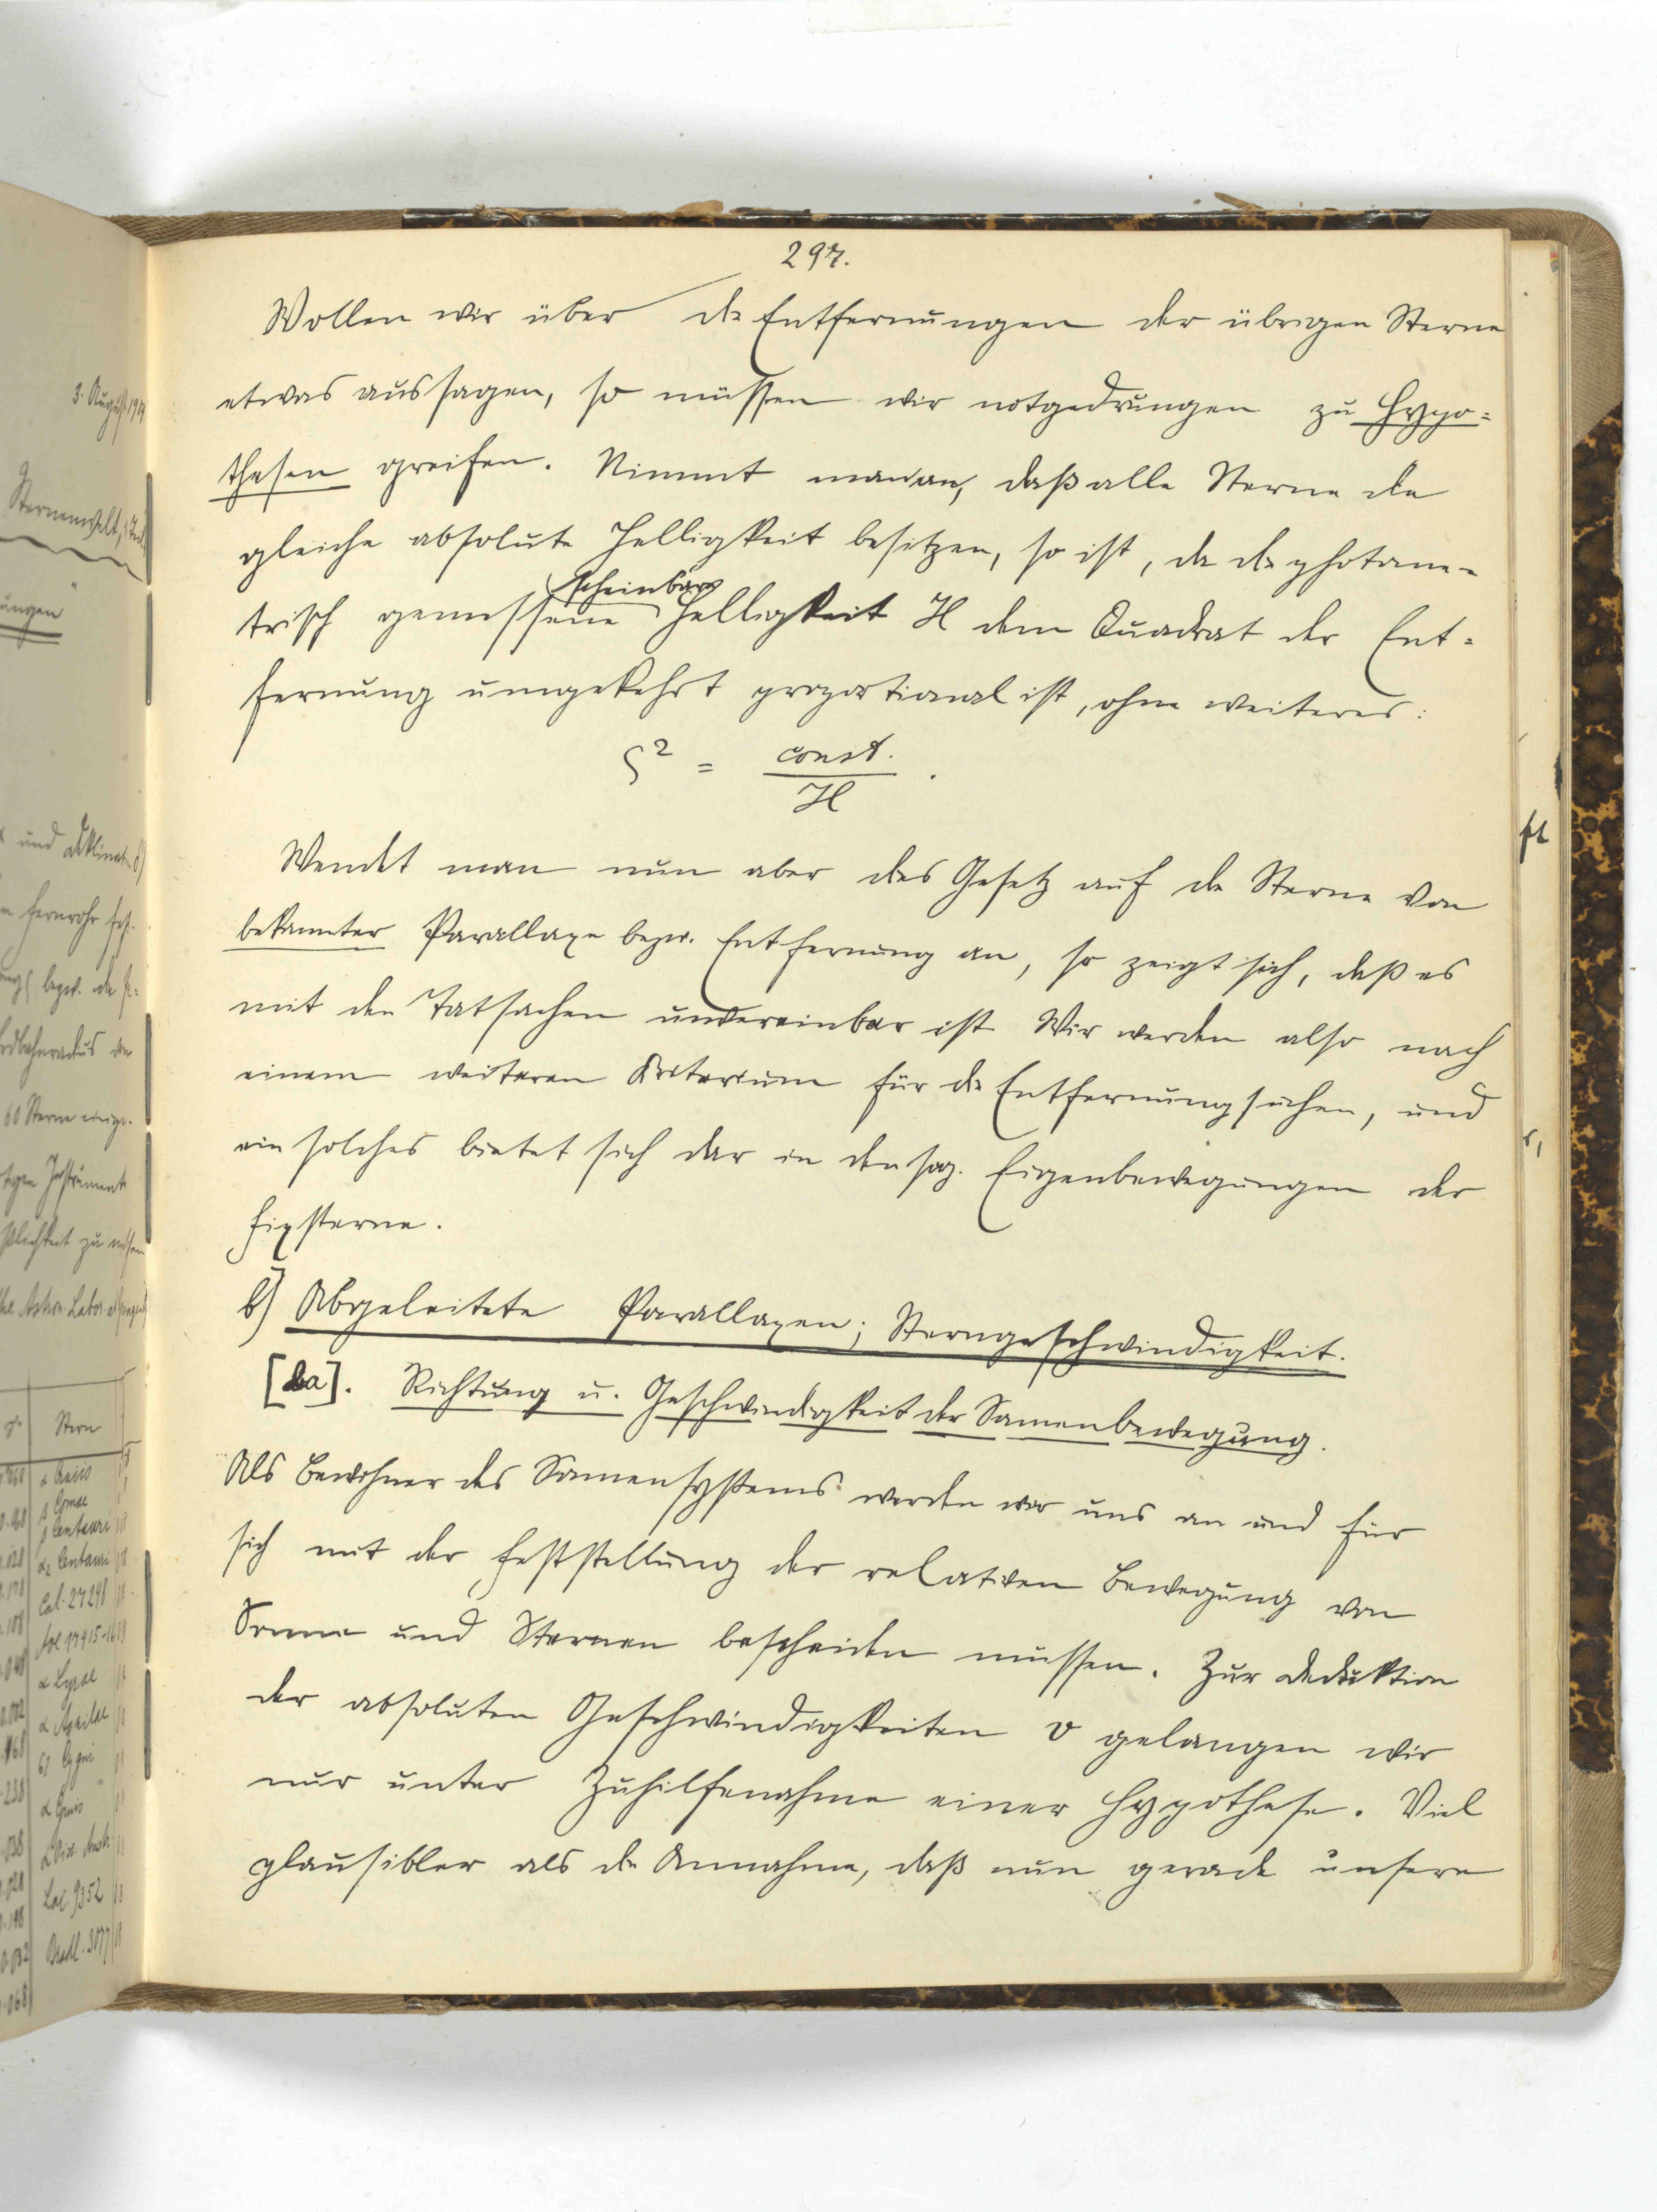 297.
Wollen wir über die Entfernungen der übrigen Sterne
etwas aussagen, so müssen wir notgedrungen zu Hypo=
thesen greifen. Nimmt man an, daß alle Sterne die
gleiche absolute Helligkeit besitzen, so ist, da die photome-
scheinbare
trisch gemessene Helligkeit H dem Quadrat der Ent=
fernung umgekehrt proportional ist, ohne weiteres:
ς² = const. / H .
Wendet man nun aber das Gesetz auf die Sterne von
bekannter Parallaxe bezw. Entfernung an, so zeigt sich, daß es
mit den Tatsachen unvereinbar ist. Wir werden also nach
einem weiteren Kriterium für die Entfernung suchen, und
ein solches bietet sich dar in den sog. Eigenbewegungen der
Fixsterne.
b) Abgeleitete Parallaxen; Sterngeschwindigkeit.
[ba]. Richtung u. Geschwindigkeit der Sonnenbewegung.
Als Bewohner des Sonnensystems werden wir uns an und für
sich mit der Feststellung der relativen Bewegung von
Sonne und Sternen bescheiden müssen. Zur Deduktion
der absoluten Geschwindigkeiten v gelangen wir
nur unter Zuhilfenahme einer Hypothese. Viel
plausibler als die Annahme, daß nun gerade unsere
3. August
Sternenwelt,
ungen"
und Deklinat
Fernrohr
bezw. die
60 Sterne
Instrumente
zu
Stern
β Comae
β Centauri
α₂ Centauri
α Lyrae
α Aquilae
61 Cygni
α Gruis
Lac. 9352
Bradl. 3077